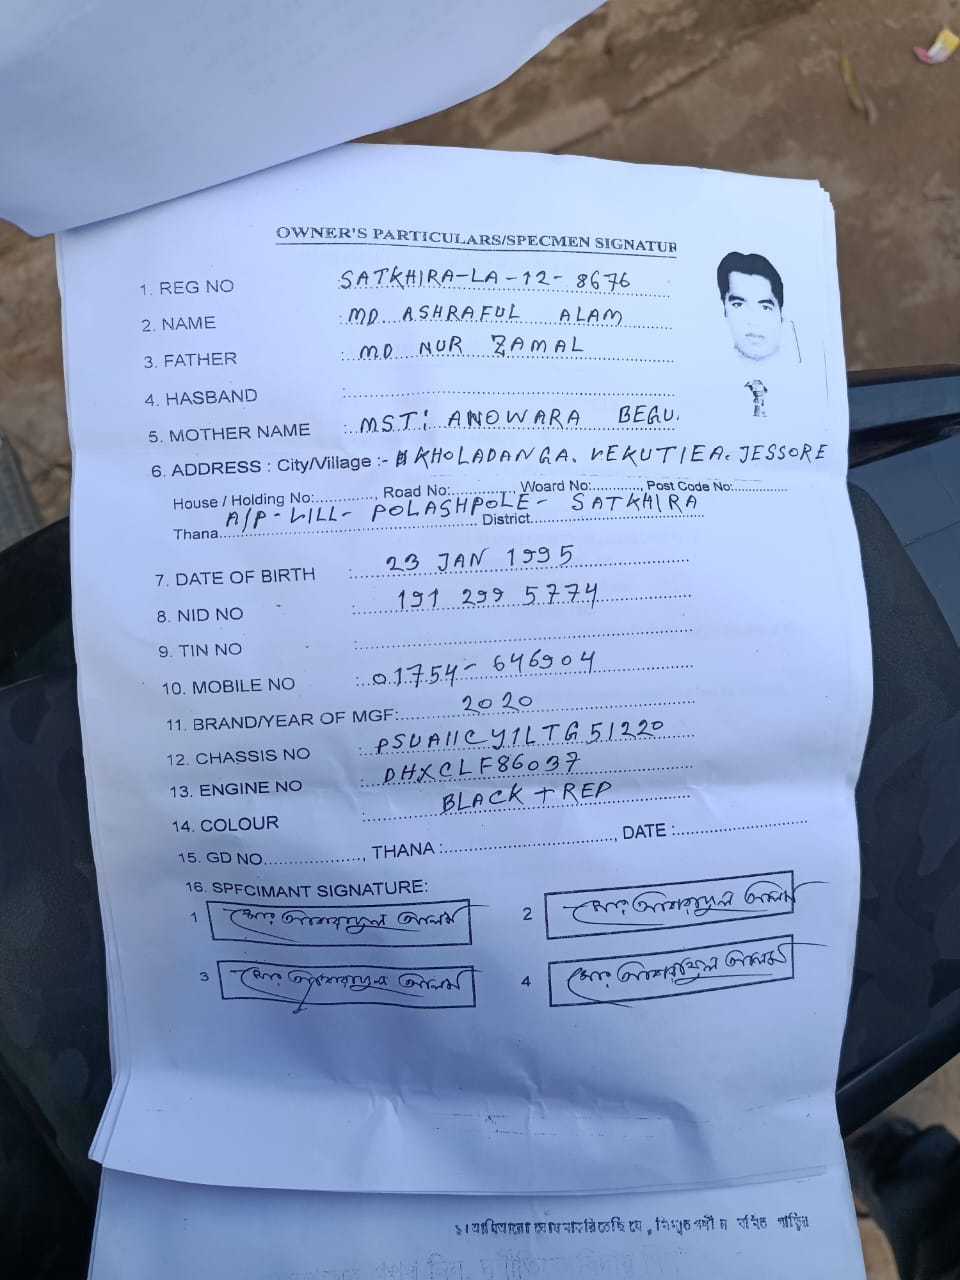 OWNER'S PARTICULARS/SPECMEN SIGNATUR
1. REG NO SATKHIRA-LA-12-8676
2. NAME : MD ASHRAFUL ALAM
3. FATHER : MD NUR ZAMAL
4. HASBAND :
5. MOTHER NAME : MST: ANOWARA BEGU.
6. ADDRESS : City/Village :- KHOLADANGA. VEKUTIEA. JESSORE
House / Holding No:............, Road No:............, Woard No:............, Post Code No:............
A/P-VILL- POLASHPOLE- SATKHIRA
Thana............ District............
7. DATE OF BIRTH : 23 JAN 1995
8. NID NO : 191 299 5774
9. TIN NO :
10. MOBILE NO : 01754-646904
11. BRAND/YEAR OF MGF: 2020
12. CHASSIS NO : PSUA11CY1LTG51220
13. ENGINE NO : DHXCLF86037
14. COLOUR : BLACK + RED
15. GD NO............, THANA :............, DATE :............
16. SPFCIMANT SIGNATURE:
1 মোঃ আশরাফুল আলম 2 মোঃ আশরাফুল আলম
3 মোঃ আশরাফুল আলম 4 মোঃ আশরাফুল আলম